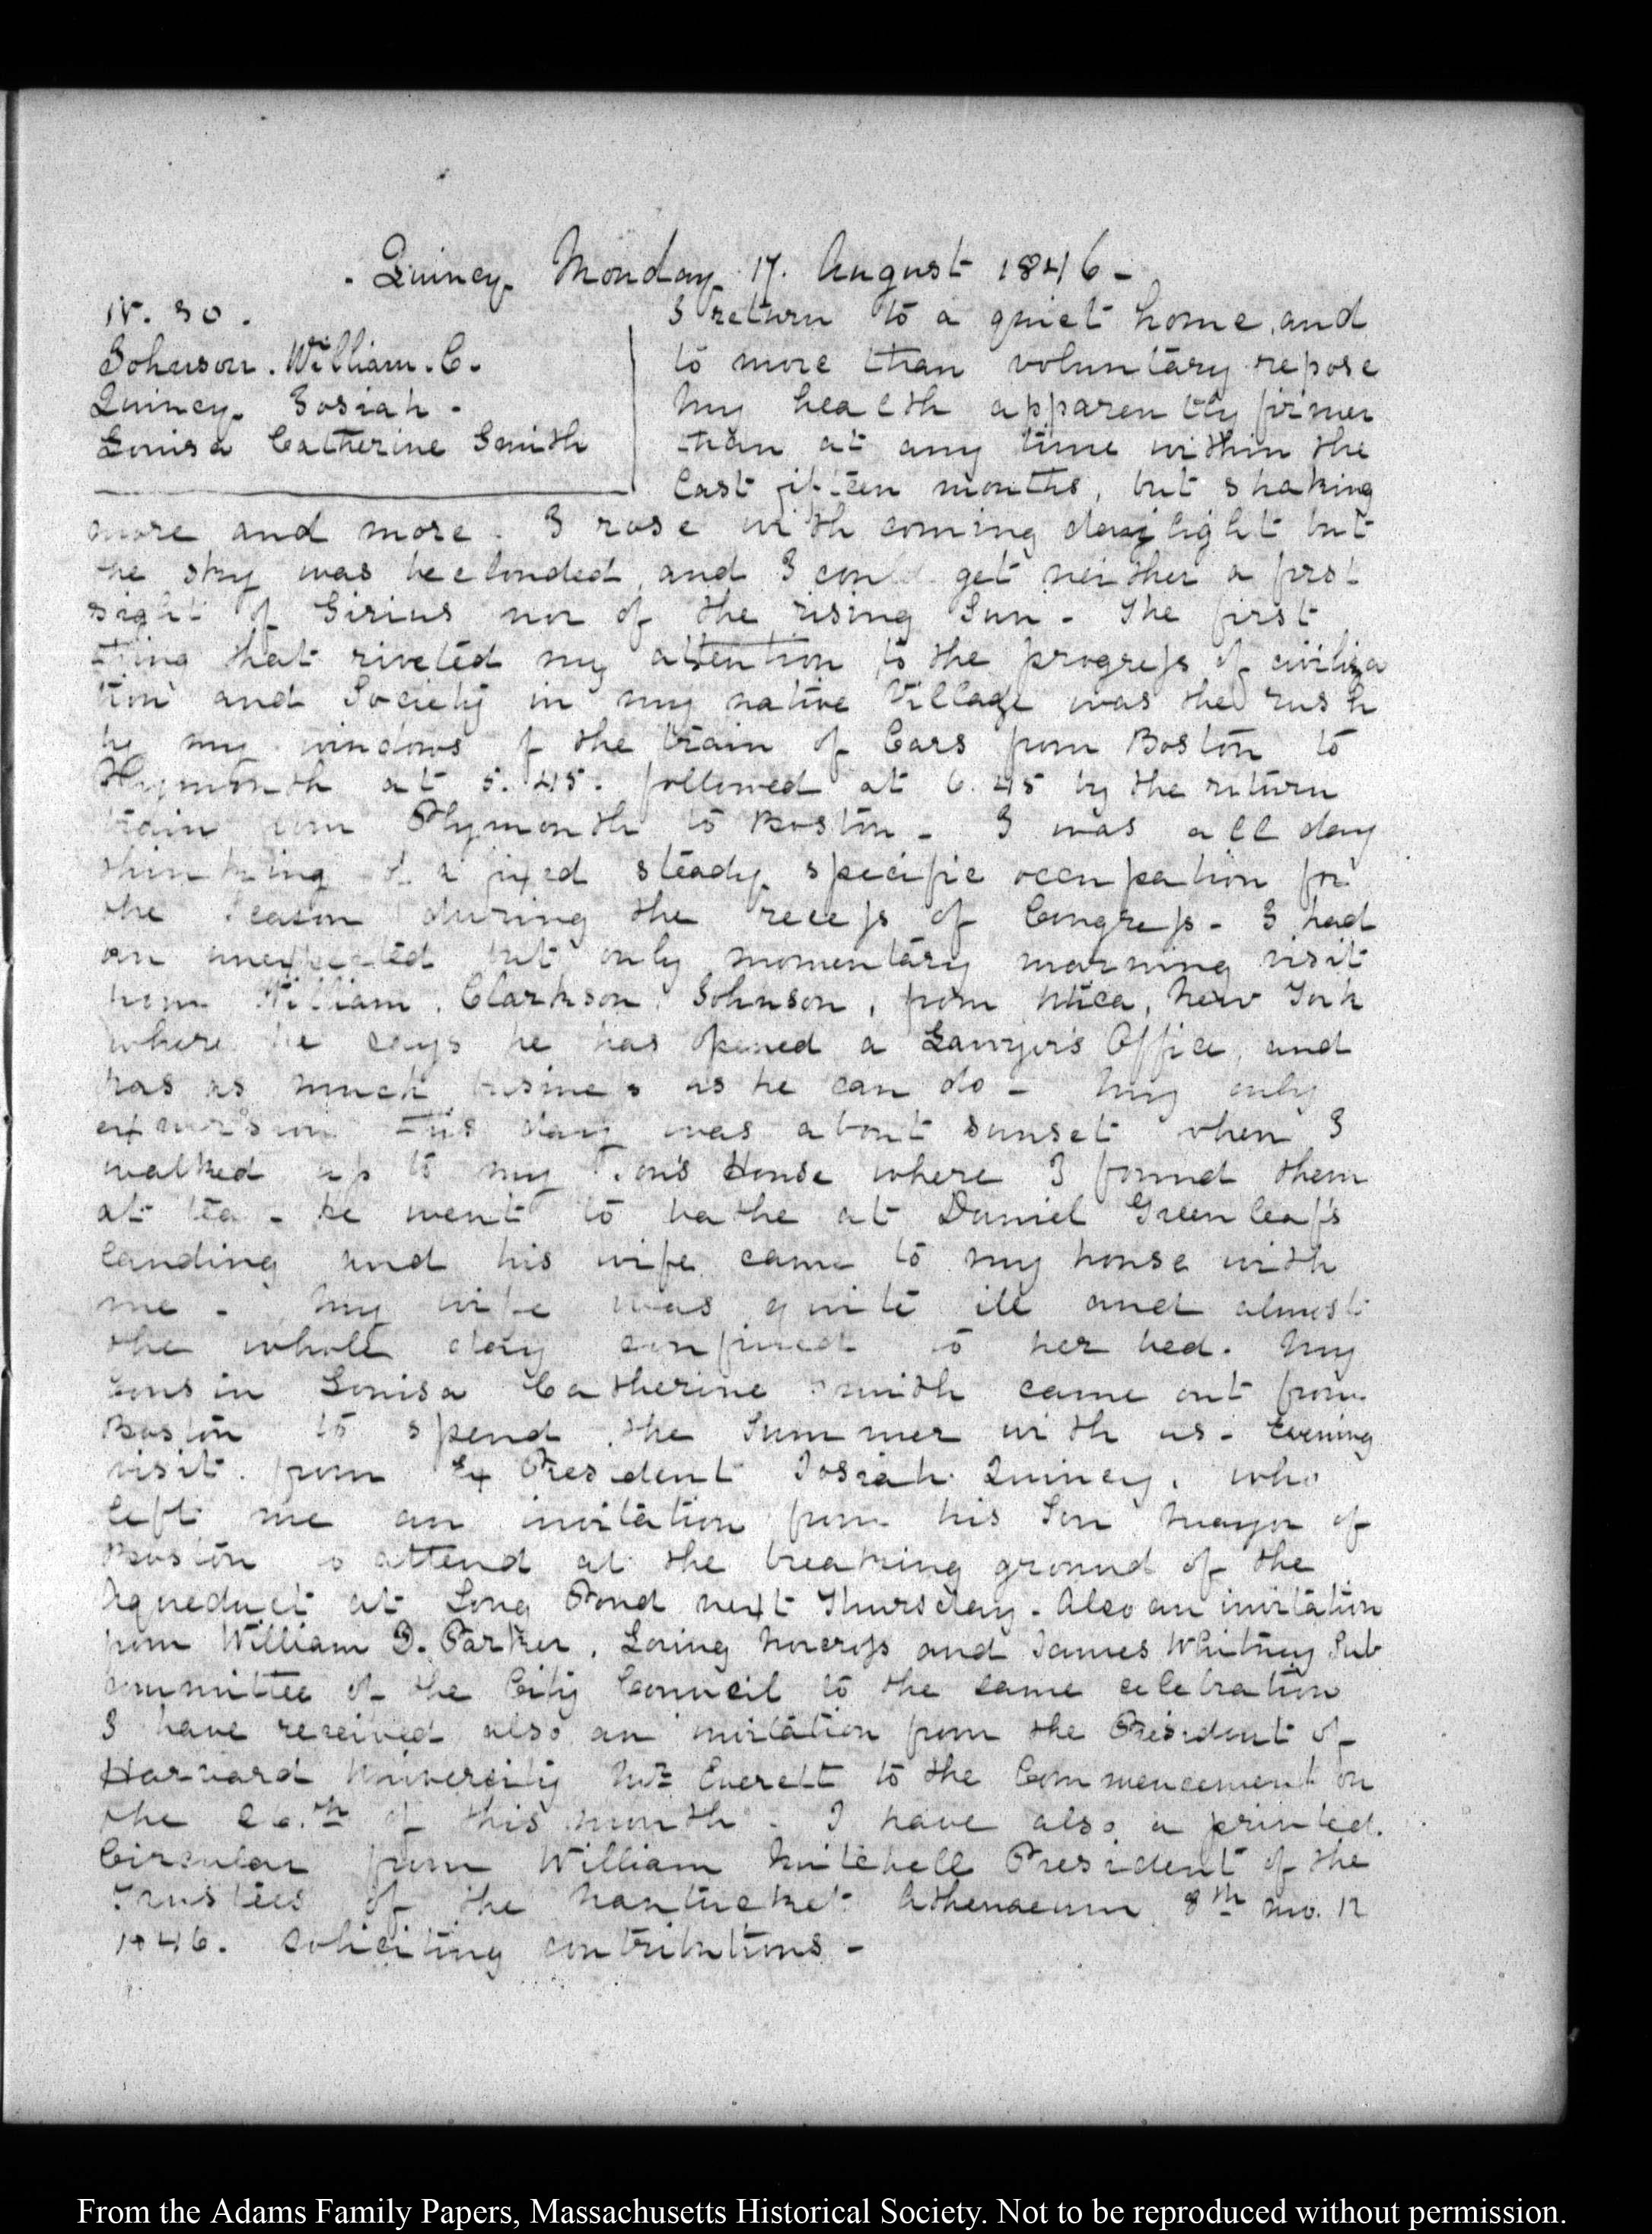 Quincy Monday 17. August 1846 -
IV. 30.
Johnson. William. C.
Quincy. Josiah -
Louisa Catherine Smith
I return to a quiet home, and
to more than voluntary repose
My health apparently firmer
than at any time within the
last fifteen months, but shaking
more and more. I rose with coming daylight but
the sky was beclouded, and I could get neither a first
sight of Sirius nor of the rising Sun - The first
thing that riveted my attention to the progress of civiliza
tion and Society in my native Village was the rush
by my windows of the train of Cars from Boston to
Plymouth at 5.45. followed at 6.45 by the return
train from Plymouth to Boston - I was all day
thinking of a fixed steady specific occupation for
the season during the recess of Congress - I had
an unexpected but only momentary morning visit
from William. Clarkson. Johnson, from Utica, New York
where he says he has opened a Lawyer's Office, and
has as much business as he can do - My only
excursion this day was about sunset when I
walked up to my Son's House where I found them
at tea - he went to bathe at Daniel Greenleaf's
landing and his wife came to my house with
me - My wife was quite ill and almost
the whole day confined to her bed. My
cousin Louisa Catherine Smith came out from
Boston to spend the Summer with us - Evening
visit from Ex President Josiah Quincy, who
left me an invitation from his Son Mayor of
Boston to attend at the breaking ground of the
Aqueduct at Long Pond next Thursday - Also an invitation
from William D. Parker, Loring Norcross and James Whitney Sub
committee of the City Council to the same celebration
I have received also an invitation from the President of
Harvard University Mr. Everett to the Commencement on
the 26.th of this month - I have also a printed.
Circular from William Mitchell President of the
Trustees of the Nantucket Athenaeum 8th mo. 12
1846. soliciting contributions -
From the Adams Family Papers, Massachusetts Historical Society. Not to be reproduced without permission.